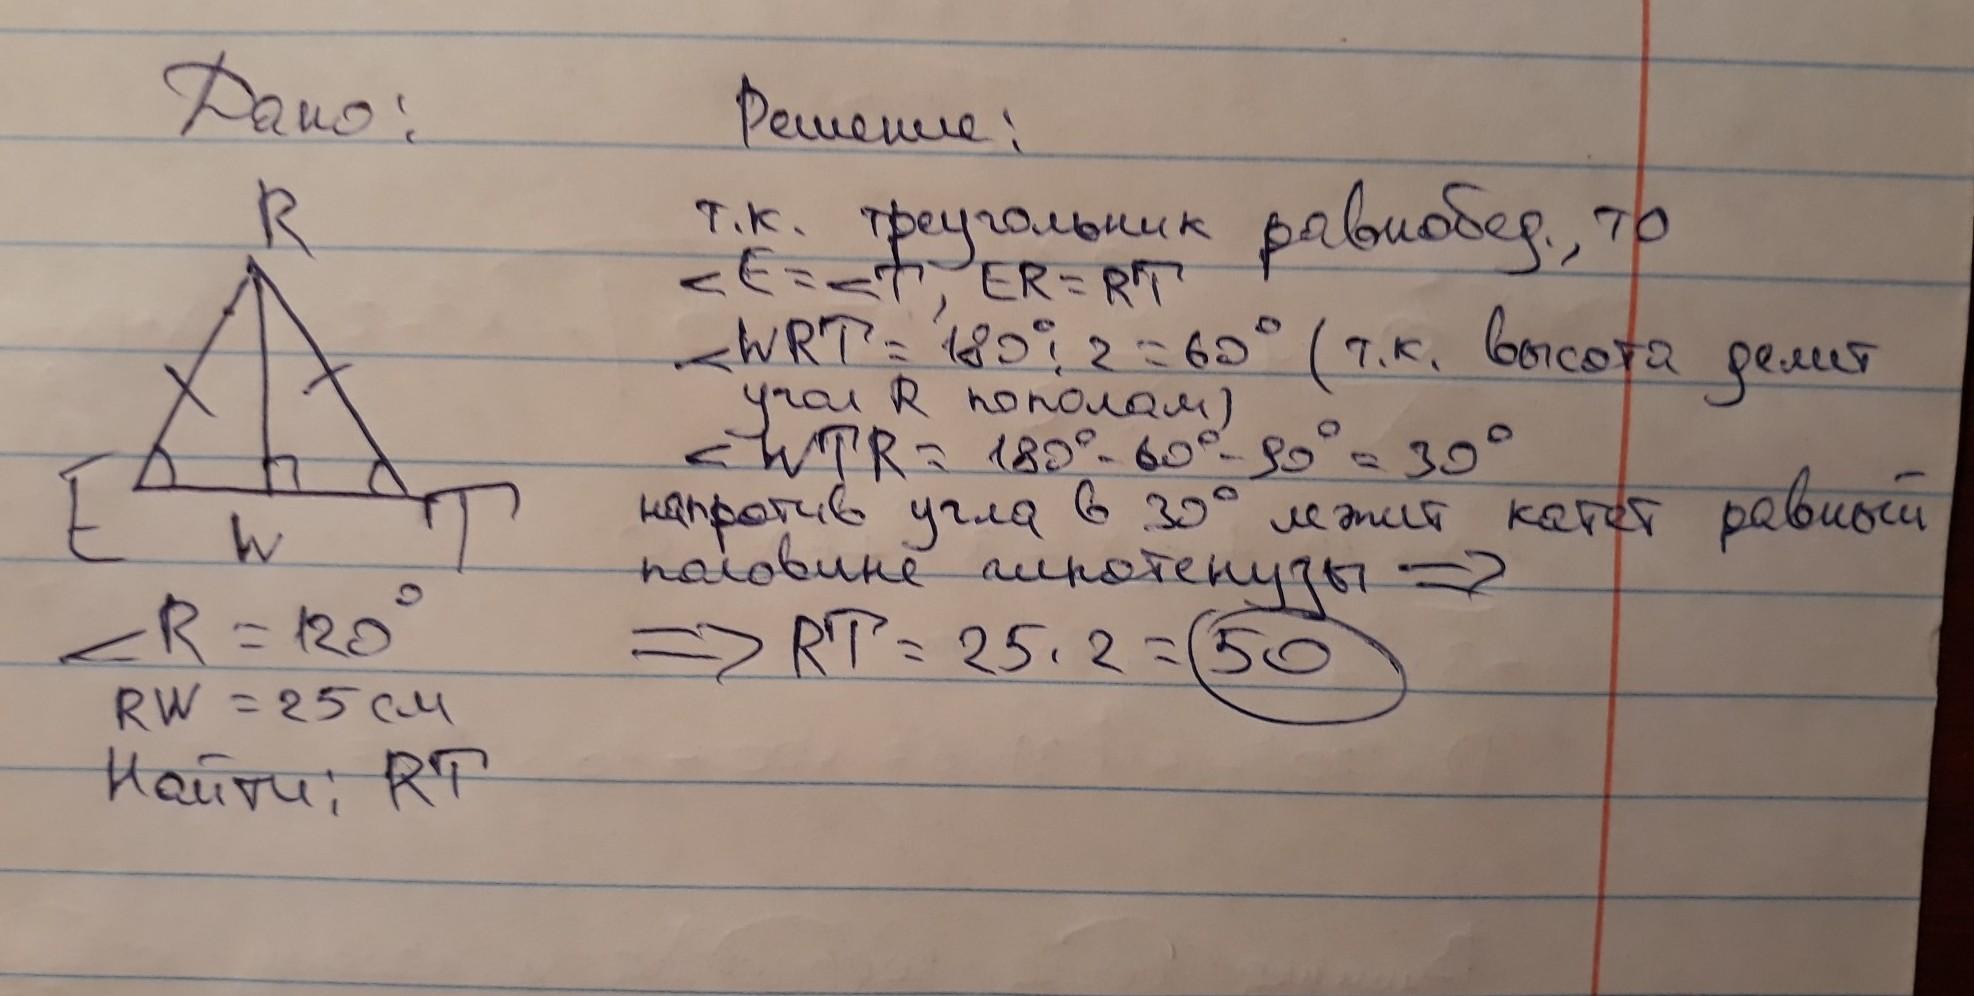 Дано:
Решение:
R
E
W
T
∠R = 120°
RW = 25 см
Найти: RT
т.к. треугольник равнобед., то
∠E = ∠T, ER = RT
∠WRT = 180° : 2 = 60° (т.к. высота делит
угол R пополам)
∠WTR = 180° - 60° - 90° = 30°
напротив угла в 30° лежит катет равный
половине гипотенузы =>
=> RT = 25 · 2 = 50